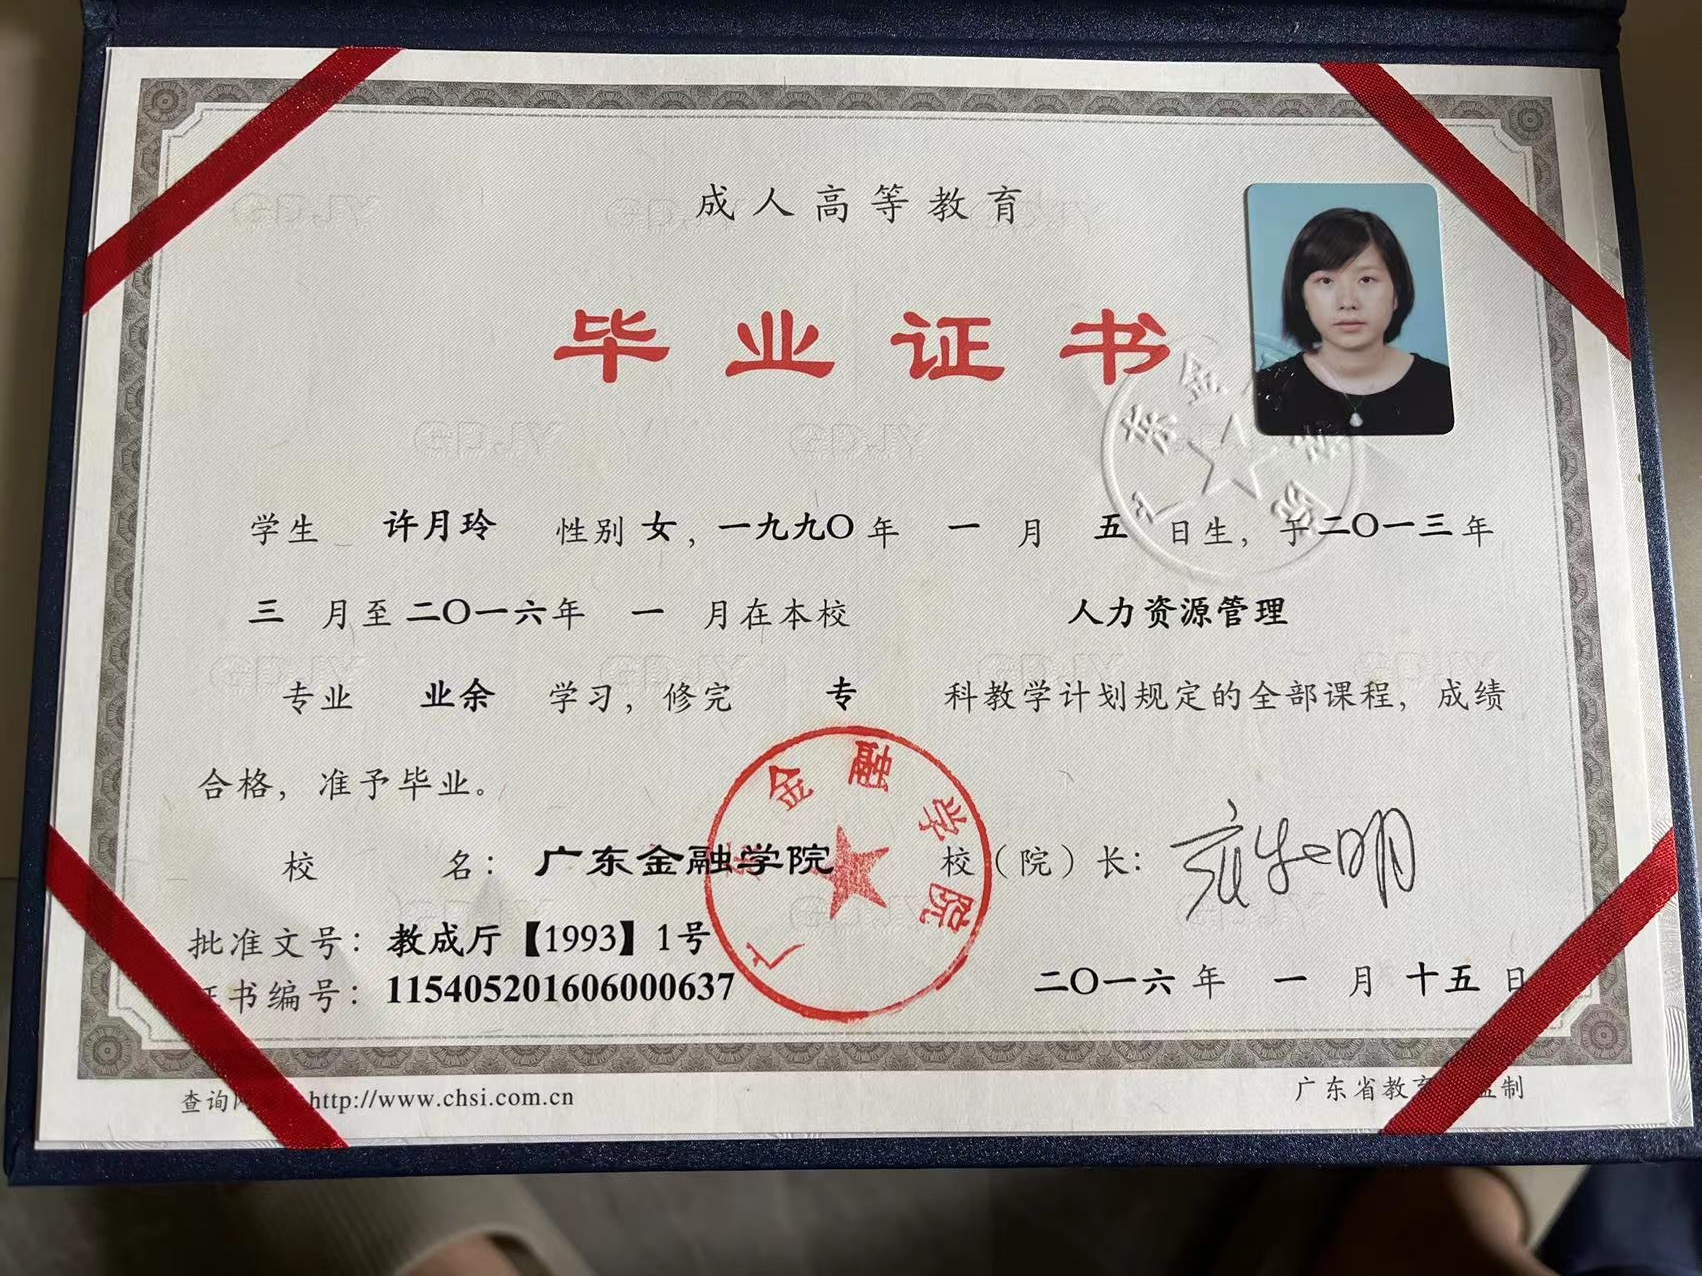 成人高等教育
毕业证书
学生 许月玲 性别 女，一九九〇年 一 月 五 日生，于二〇一三年
三 月至二〇一六年 一 月在本校 人力资源管理
专业 业余 学习，修完 专 科教学计划规定的全部课程，成绩
合格，准予毕业。
校 名：广东金融学院 校（院）长：
广东金融学院
批准文号：教成厅【1993】1号
证书编号：115405201606000637
二〇一六年 一 月 十五 日
查询网 http://www.chsi.com.cn
广东省教育 监制